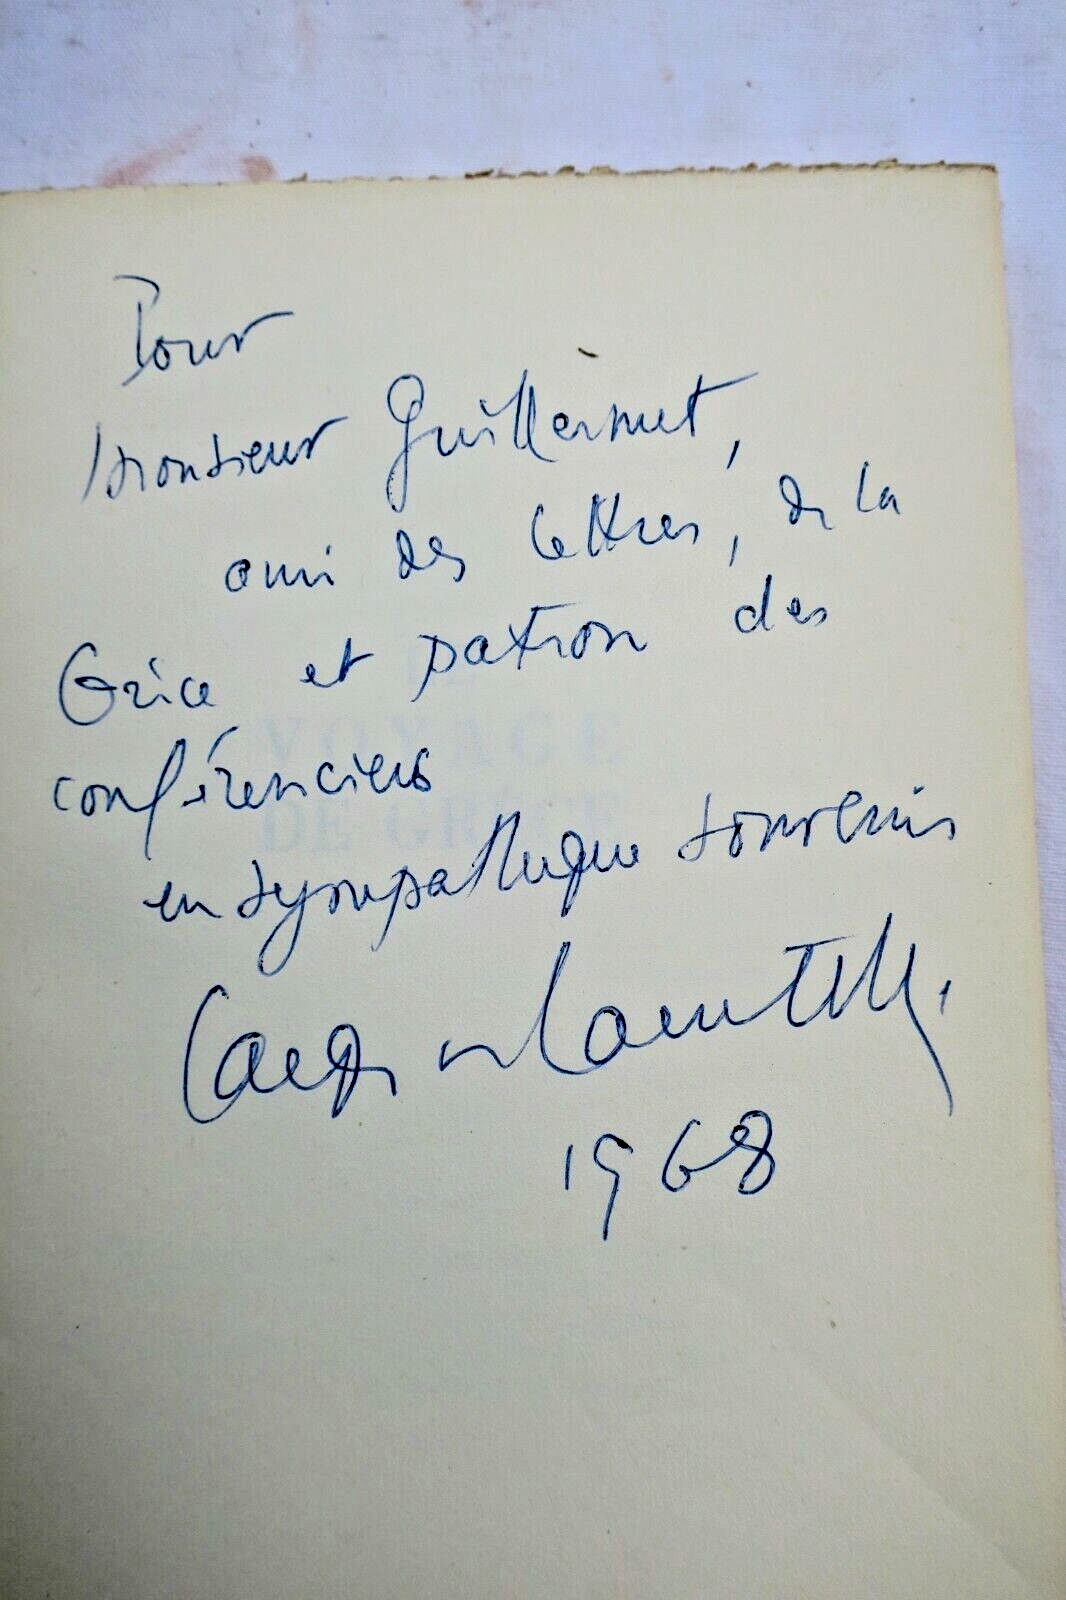 Pour
Monsieur Guillermet,
ami des lettres, de la
Grèce et patron des
conférenciers
en sympathique souvenir
Jacques Lacarrière
1968
VOYAGE
DE GRÈCE